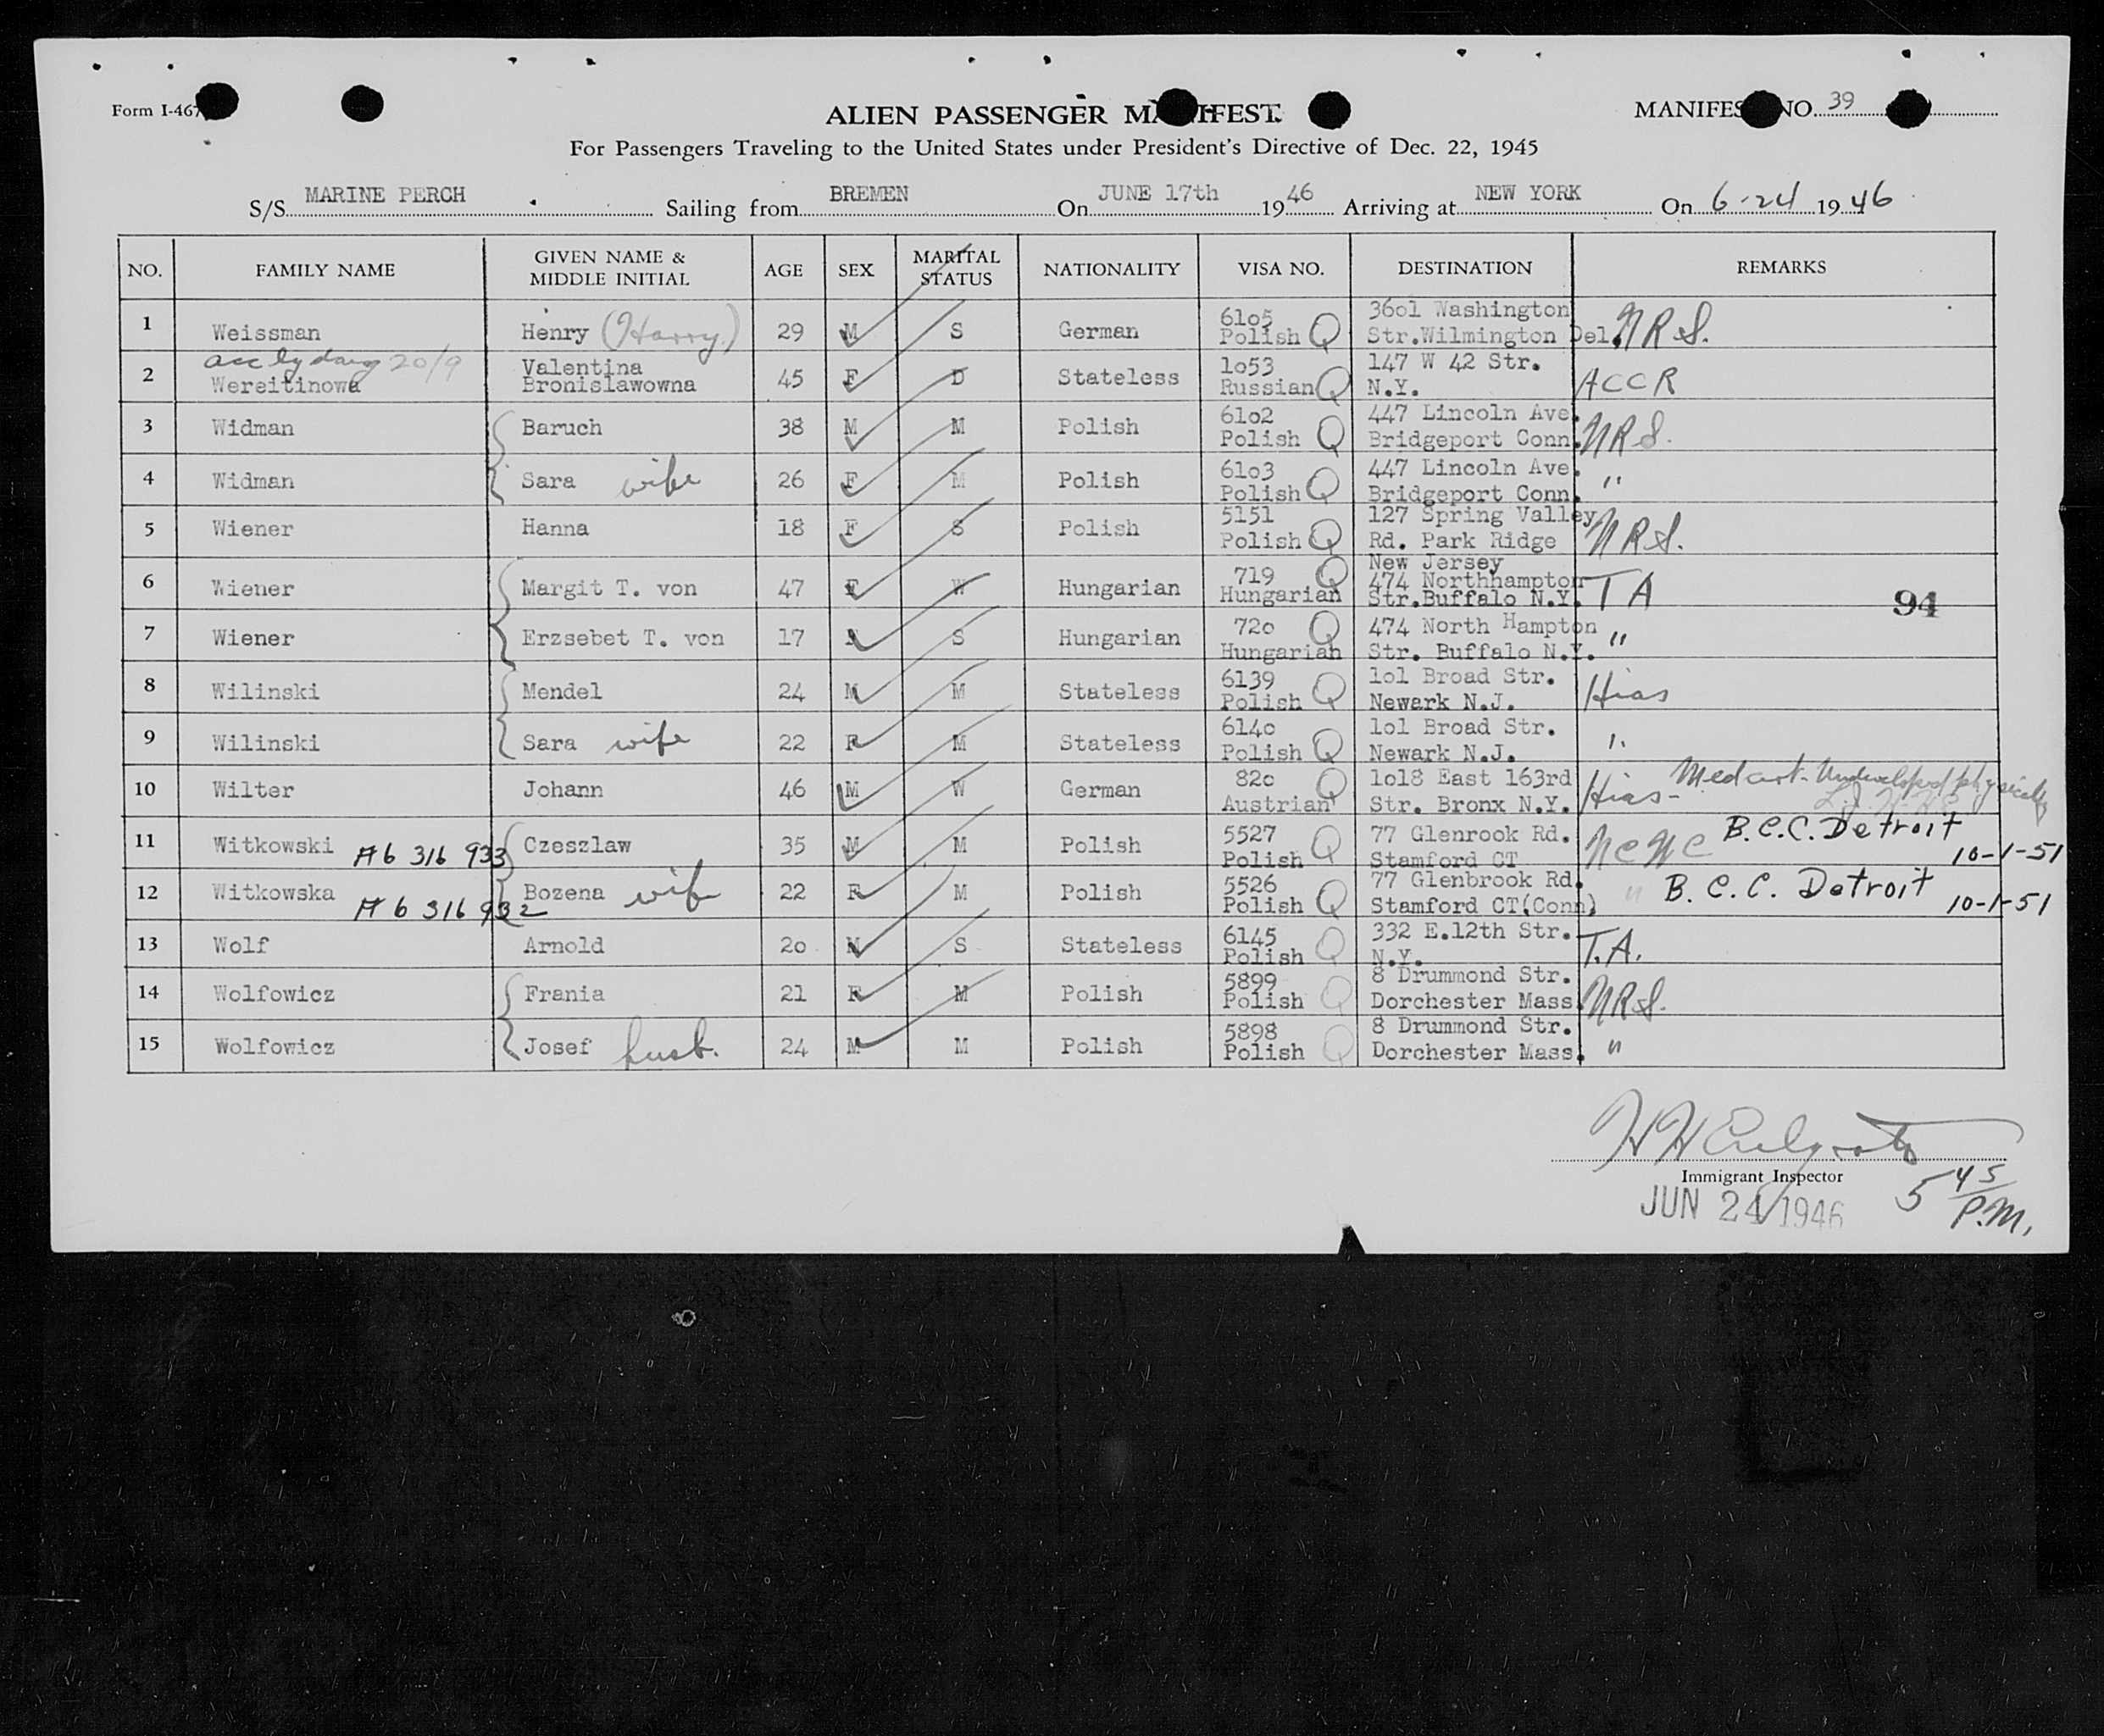 Form I-467
ALIEN PASSENGER MANIFEST
MANIFEST NO. 39
For Passengers Traveling to the United States under President's Directive of Dec. 22, 1945
S/S MARINE PERCH Sailing from BREMEN On JUNE 17th 1946 Arriving at NEW YORK On 6-24 1946
NO. FAMILY NAME GIVEN NAME & MIDDLE INITIAL AGE SEX MARITAL STATUS NATIONALITY VISA NO. DESTINATION REMARKS
1 Weissman Henry (Harry) 29 M S German 6lo5 Polish Q 36ol Washington Str.Wilmington Del. NRS.
2 Wereitinowa Valentina Bronislawowna 45 F D Stateless lo53 Russian Q 147 W 42 Str. N.Y. ACCR
acc by 20/9
3 Widman Baruch 38 M M Polish 6lo2 Polish Q 447 Lincoln Ave. Bridgeport Conn. NRS.
4 Widman Sara wife 26 F M Polish 6lo3 Polish Q 447 Lincoln Ave. Bridgeport Conn. "
5 Wiener Hanna 18 F S Polish 5151 Polish Q 127 Spring Valley Rd. Park Ridge New Jersey NRS.
6 Wiener Margit T. von 47 F W Hungarian 719 Hungarian Q 474 Northhampton Str.Buffalo N.Y. TA
94
7 Wiener Erzsebet T. von 17 S Hungarian 72o Hungarian Q 474 North Hampton Str. Buffalo N.Y. "
8 Wilinski Mendel 24 M M Stateless 6139 Polish Q lol Broad Str. Newark N.J. Hias
9 Wilinski Sara wife 22 F M Stateless 614o Polish Q lol Broad Str. Newark N.J. "
10 Wilter Johann 46 M W German 82o Austrian Q lol8 East 163rd Str. Bronx N.Y. Hias - Med cert - Undeveloped physically
11 Witkowski A6 316 933 Czeszlaw 35 M M Polish 5527 Polish Q 77 Glenrook Rd. Stamford CT NCWC B.C.C. Detroit 10-1-51
12 Witkowska A6 316 932 Bozena wife 22 F M Polish 5526 Polish Q 77 Glenbrook Rd. Stamford CT(Conn) " B.C.C. Detroit 10-1-51
13 Wolf Arnold 2o M S Stateless 6145 Polish Q 332 E.12th Str. N.Y. T.A.
14 Wolfowicz Frania 21 F M Polish 5899 Polish Q 8 Drummond Str. Dorchester Mass. NRS.
15 Wolfowicz Josef husb. 24 M M Polish 5898 Polish Q 8 Drummond Str. Dorchester Mass. "
Immigrant Inspector
JUN 24 1946
5 45 P.M.